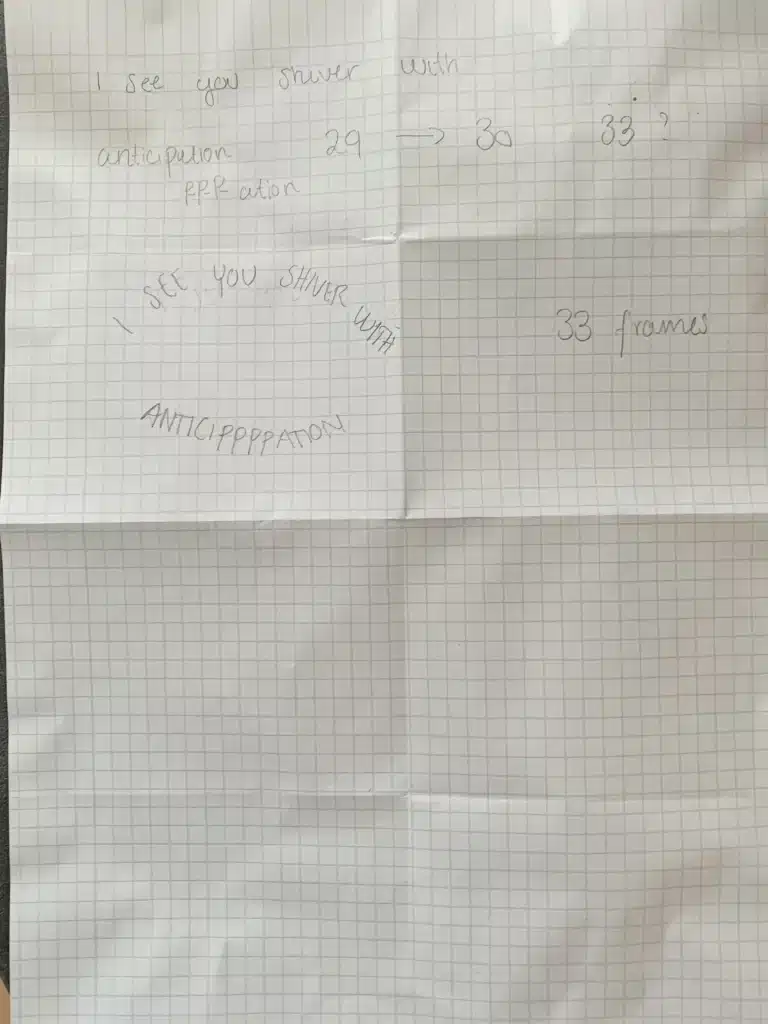 I see you shiver with
anticipation 29 → 30 33 ?
PPP ation
I SEE YOU SHIVER WITH
33 frames
ANTICIPPPPATION